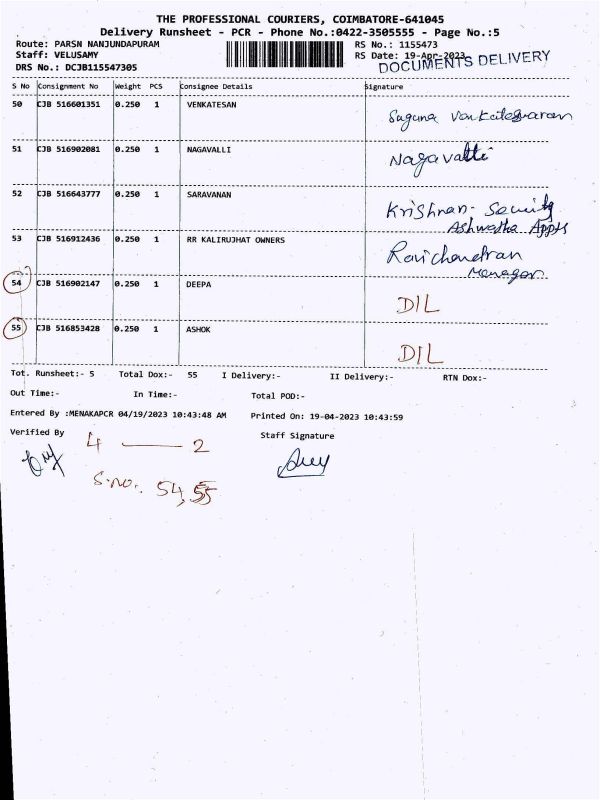 THE PROFESSIONAL COURIERS, COIMBATORE-641045
Delivery Runsheet - PCR - Phone No.:0422-3505555 - Page No.:5
Route: PARSN NANJUNDAPURAM RS No.: 1155473
Staff: VELUSAMY RS Date: 19-Apr-2023
DRS No.: DCJB115547305 DOCUMENTS DELIVERY
S No Consignment No Weight PCS Consignee Details Signature
50 CJB 516601351 0.250 1 VENKATESAN
Suguna Venkateswaran
51 CJB 516902081 0.250 1 NAGAVALLI
Nagavalli
52 CJB 516643777 0.250 1 SARAVANAN
Krishnan- Security
Ashwatha Appts
53 CJB 516912436 0.250 1 RR KALIRUJHAT OWNERS
Ravichandran
Manager
54 CJB 516902147 0.250 1 DEEPA
D/L
55 CJB 516853428 0.250 1 ASHOK
D/L
Tot. Runsheet:- 5 Total Dox:- 55 I Delivery:- II Delivery:- RTN Dox:-
Out Time:- In Time:- Total POD:-
Entered By :MENAKAPCR 04/19/2023 10:43:48 AM Printed On: 19-04-2023 10:43:59
Verified By Staff Signature
4 — 2
S.no:. 54,55